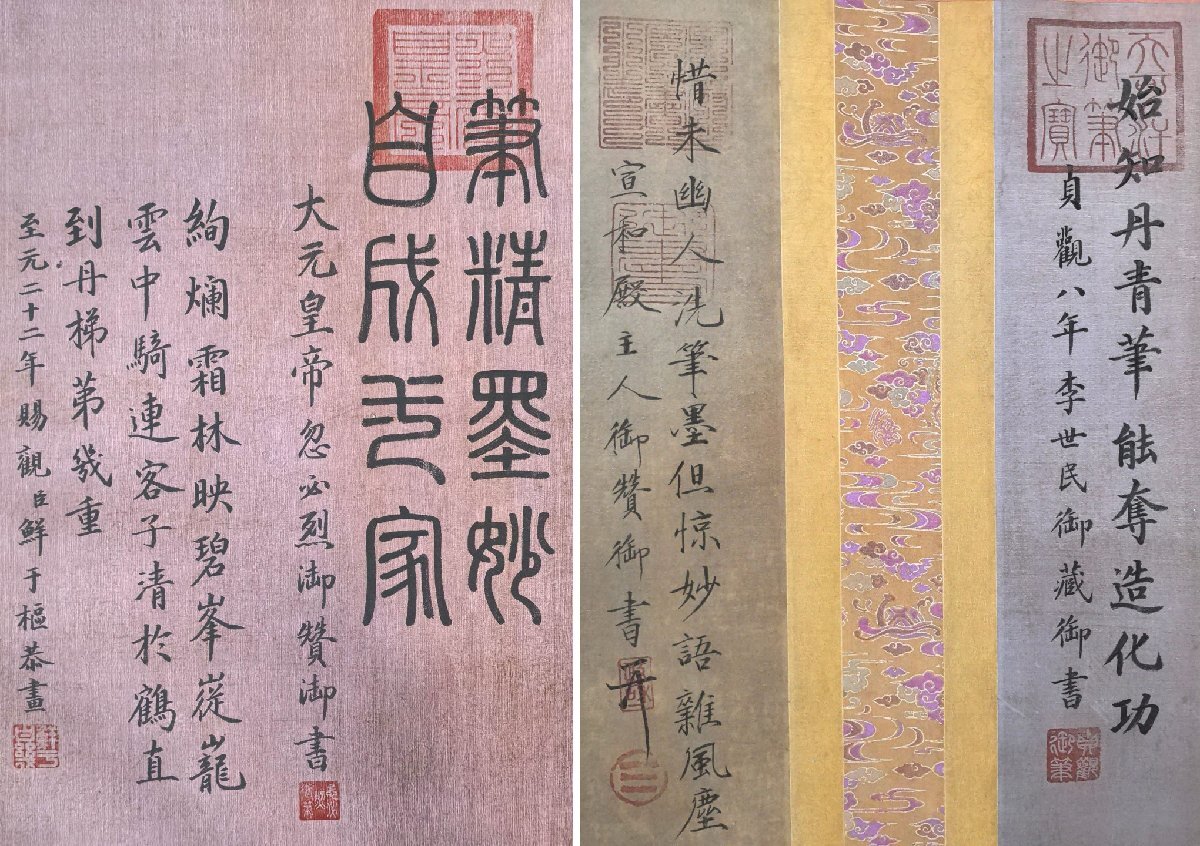 筆精墨妙
自成一家
大元皇帝忽必烈御贊御書
絢爛霜林映碧峯嵸巃
雲中騎連客子清於鶴直
到丹梯第幾重
至元二十二年賜觀臣鮮于樞恭畫
始知丹青筆能奪造化功
貞觀八年李世民御藏御書
惜未幽人洗筆墨但惊妙語雜風塵
宣和殿主人御贊御書
御筆之寶
貞觀
御筆